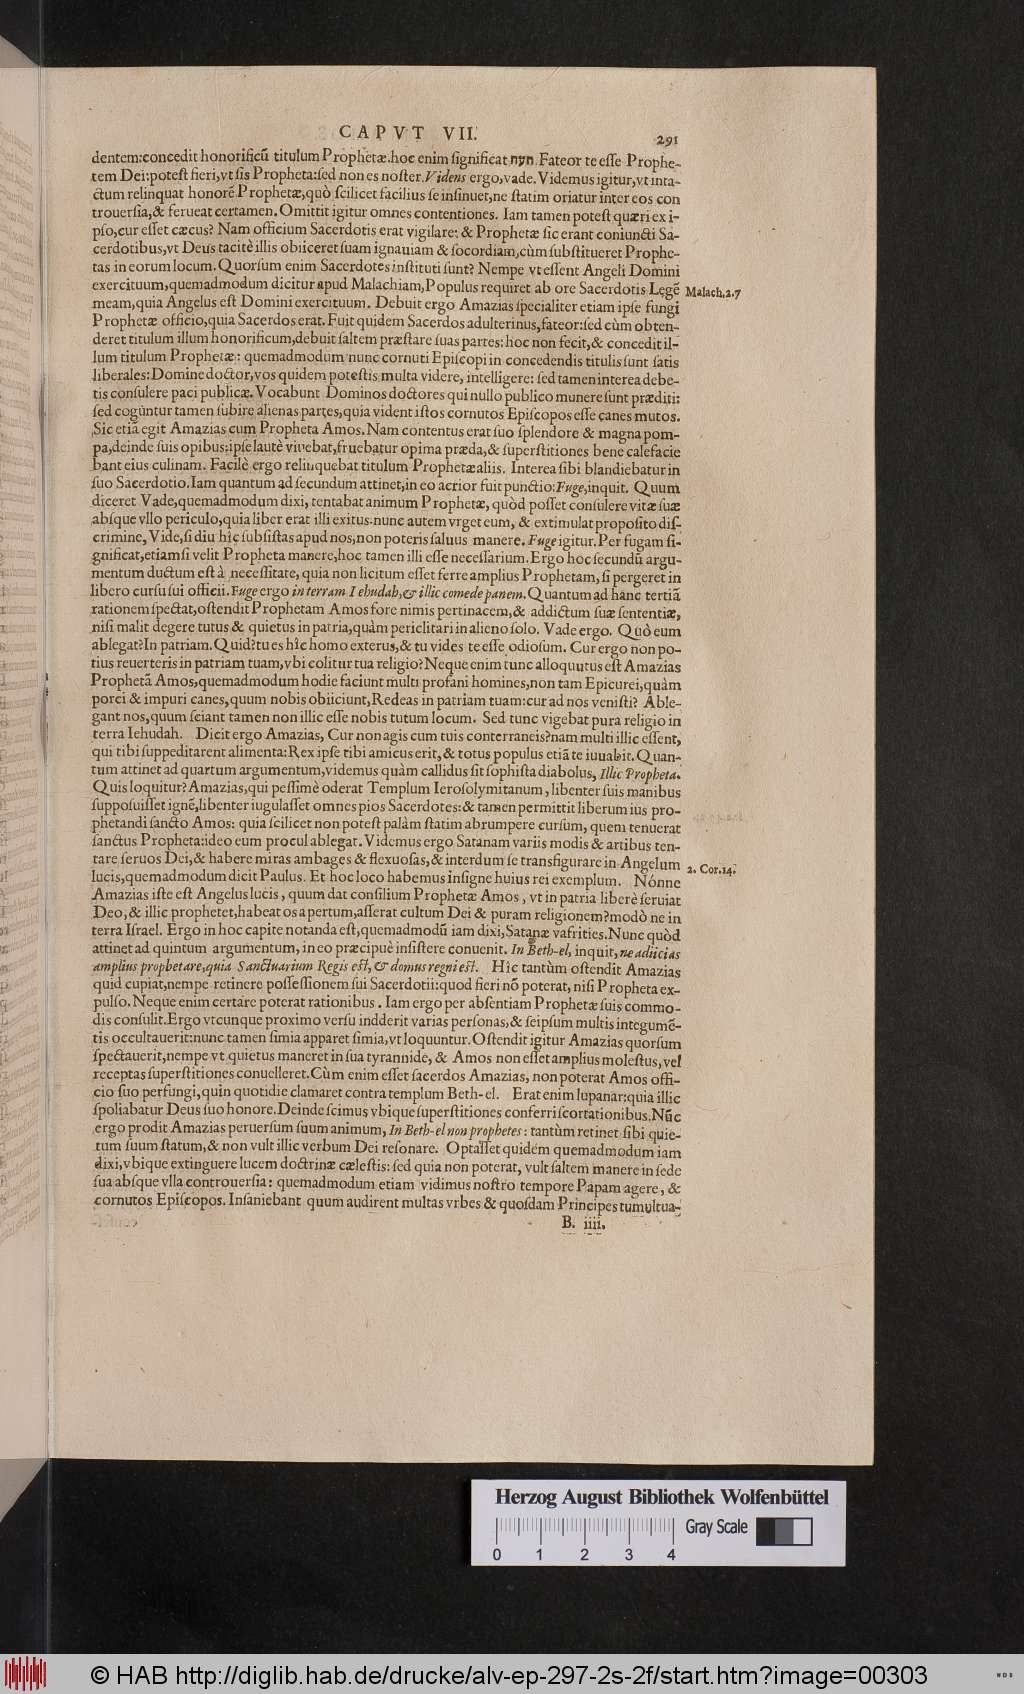 CAPVT VII.
291
dentem:concedit honorificũ titulum Prophetæ.hoc enim ſignificat נביא. Fateor te eſſe Prophe-
tem Dei:poteſt fieri,vt ſis Propheta:ſed non es noſter. Videns ergo,vade. Videmus igitur,vt inta-
ctum relinquat honorẽ Prophetæ,quò ſcilicet facilius ſe inſinuet,ne ſtatim oriatur inter eos con
trouerſia,& ferueat certamen. Omittit igitur omnes contentiones. Iam tamen poteſt quæri ex i-
pſo,cur eſſet cæcus? Nam officium Sacerdotis erat vigilare: & Prophetæ ſic erant coniuncti Sa-
cerdotibus,vt Deus tacitè illis obiiceret ſuam ignauiam & ſocordiam,cùm ſubſtitueret Prophe-
tas in eorum locum. Quorſum enim Sacerdotes inſtituti ſunt? Nempe vt eſſent Angeli Domini
exercituum,quemadmodum dicitur apud Malachiam,Populus requiret ab ore Sacerdotis Legẽ
Malach.2.7
meam,quia Angelus eſt Domini exercituum. Debuit ergo Amazias ſpecialiter etiam ipſe fungi
Prophetæ officio,quia Sacerdos erat. Fuit quidem Sacerdos adulterinus,fateor:ſed cùm obten-
deret titulum illum honorificum,debuit ſaltem præſtare ſuas partes: hoc non fecit,& concedit il-
lum titulum Prophetæ: quemadmodum nunc cornuti Epiſcopi in concedendis titulis ſunt ſatis
liberales: Domine doctor,vos quidem poteſtis multa videre, intelligere: ſed tamen interea debe-
tis conſulere paci publicæ. Vocabunt Dominos doctores qui nullo publico munere ſunt præditi:
ſed coguntur tamen ſubire alienas partes,quia vident iſtos cornutos Epiſcopos eſſe canes mutos.
Sic etiã egit Amazias cum Propheta Amos. Nam contentus erat ſuo ſplendore & magna pom-
pa,deinde ſuis opibus:ipſe lautè viuebat,fruebatur opima præda,& ſuperſtitiones bene calefacie
bant eius culinam. Facilè ergo relinquebat titulum Prophetæ aliis. Interea ſibi blandiebatur in
ſuo Sacerdotio.Iam quantum ad ſecundum attinet,in eo acrior fuit punctio:Fuge,inquit. Quum
diceret Vade,quemadmodum dixi, tentabat animum Prophetæ, quòd poſſet conſulere vitæ ſuæ
abſque vllo periculo,quia liber erat illi exitus.nunc autem vrget eum, & extimulat propoſito diſ-
crimine, Vide,ſi diu hîc ſubſiſtas apud nos,non poteris ſaluus manere. Fuge igitur. Per fugam ſi-
gnificat,etiamſi velit Propheta manere,hoc tamen illi eſſe neceſſarium. Ergo hoc ſecundũ argu-
mentum ductum eſt à neceſſitate, quia non licitum eſſet ferre amplius Prophetam, ſi pergeret in
libero curſu ſui officii. Fuge ergo in terram Iehudah,& illic comede panem. Quantum ad hanc tertiã
rationem ſpectat,oſtendit Prophetam Amos fore nimis pertinacem,& addictum ſuæ ſententiæ,
niſi malit degere tutus & quietus in patria,quàm periclitari in alieno ſolo. Vade ergo. Quò eum
ablegat?In patriam. Quid?tu es hîc homo exterus,& tu vides te eſſe odioſum. Cur ergo non po-
tius reuerteris in patriam tuam,vbi colitur tua religio? Neque enim tunc alloquutus eſt Amazias
Prophetã Amos,quemadmodum hodie faciunt multi profani homines,non tam Epicurei,quàm
porci & impuri canes,quum nobis obiiciunt,Redeas in patriam tuam:cur ad nos veniſti? Able-
gant nos,quum ſciant tamen non illic eſſe nobis tutum locum. Sed tunc vigebat pura religio in
terra Iehudah. Dicit ergo Amazias, Cur non agis cum tuis conterraneis?nam multi illic eſſent,
qui tibi ſuppeditarent alimenta:Rex ipſe tibi amicus erit,& totus populus etiã te iuuabit. Quan-
tum attinet ad quartum argumentum,videmus quàm callidus ſit ſophiſta diabolus, Illic Propheta.
Quis loquitur?Amazias,qui peſſimè oderat Templum Ieroſolymitanum, libenter ſuis manibus
ſuppoſuiſſet ignẽ,libenter iugulaſſet omnes pios Sacerdotes:& tamen permittit liberum ius pro-
phetandi ſancto Amos: quia ſcilicet non poteſt palàm ſtatim abrumpere curſum, quem tenuerat
ſanctus Propheta:ideo eum procul ablegat. Videmus ergo Satanam variis modis & artibus ten-
tare ſeruos Dei,& habere miras ambages & flexuoſas,& interdum ſe transfigurare in Angelum
2. Cor.14.
lucis,quemadmodum dicit Paulus. Et hoc loco habemus inſigne huius rei exemplum. Nónne
Amazias iſte eſt Angelus lucis, quum dat conſilium Prophetæ Amos, vt in patria liberè ſeruiat
Deo,& illic prophetet,habeat os apertum,aſſerat cultum Dei & puram religionem?modò ne in
terra Iſrael. Ergo in hoc capite notanda eſt,quemadmodũ iam dixi,Satanæ vafrities.Nunc quòd
attinet ad quintum argumentum, in eo præcipuè inſiſtere conuenit. In Beth-el, inquit, ne adiicias
amplius prophetare,quia Sanctuarium Regis eſt,& domus regni eſt. Hîc tantùm oſtendit Amazias
quid cupiat,nempe retinere poſſeſſionem ſui Sacerdotii:quod fieri nõ poterat, niſi Propheta ex-
pulſo. Neque enim certare poterat rationibus. Iam ergo per abſentiam Prophetæ ſuis commo-
dis conſulit.Ergo vtcunque proximo verſu indderit varias perſonas,& ſeipſum multis integumẽ-
tis occultauerit:nunc tamen ſimia apparet ſimia,vt loquuntur. Oſtendit igitur Amazias quorſum
ſpectauerit,nempe vt quietus maneret in ſua tyrannide, & Amos non eſſet amplius moleſtus,vel
receptas ſuperſtitiones conuelleret.Cùm enim eſſet ſacerdos Amazias, non poterat Amos offi-
cio ſuo perfungi,quin quotidie clamaret contra templum Beth-el. Erat enim lupanar:quia illic
ſpoliabatur Deus ſuo honore.Deinde ſcimus vbique ſuperſtitiones conferri ſcortationibus.Nũc
ergo prodit Amazias peruerſum ſuum animum, In Beth-el non prophetes: tantùm retinet ſibi quie-
tum ſuum ſtatum,& non vult illic verbum Dei reſonare. Optaſſet quidem quemadmodum iam
dixi,vbique extinguere lucem doctrinæ cæleſtis: ſed quia non poterat, vult ſaltem manere in ſede
ſua abſque vlla controuerſia: quemadmodum etiam vidimus noſtro tempore Papam agere, &
cornutos Epiſcopos. Inſaniebant quum audirent multas vrbes & quoſdam Principes tumultua-
B. iiii.
Herzog August Bibliothek Wolfenbüttel
Gray Scale
0 1 2 3 4
© HAB http://diglib.hab.de/drucke/alv-ep-297-2s-2f/start.htm?image=00303